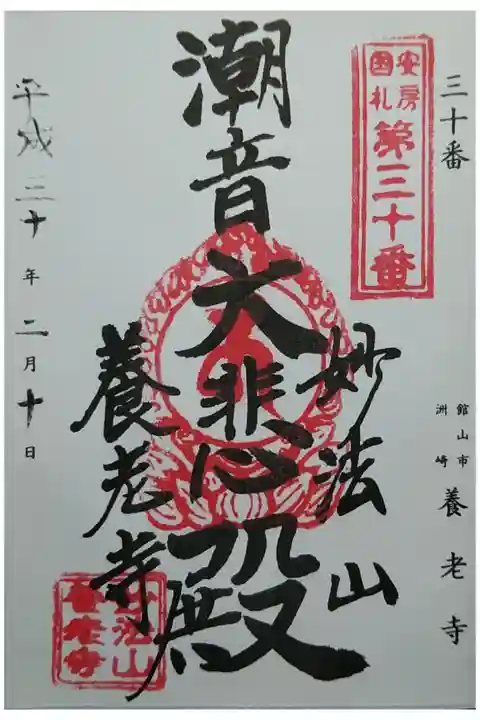 三十番
館山市
洲崎
養老寺
安房
国札
第三十番
妙法山
潮音大悲殿
養老寺
平成三十年二月十日
妙法山
養老寺